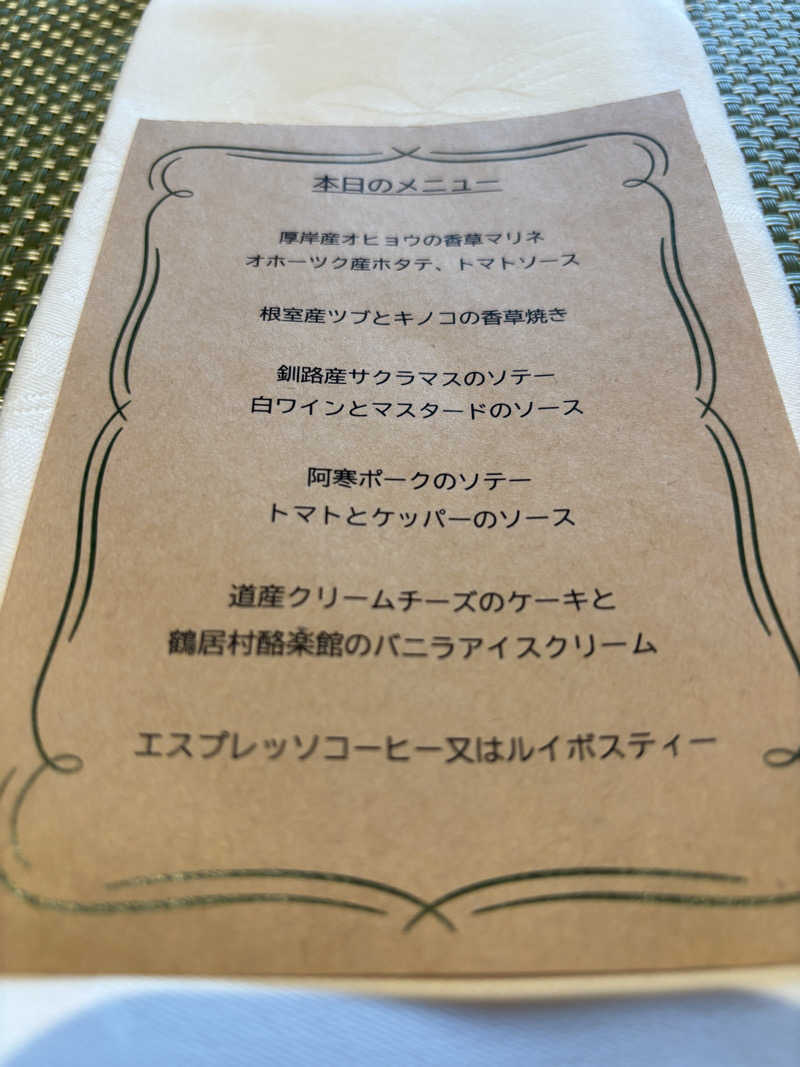 本日のメニュー
厚岸産オヒョウの香草マリネ
オホーツク産ホタテ、トマトソース
根室産ツブとキノコの香草焼き
釧路産サクラマスのソテー
白ワインとマスタードのソース
阿寒ポークのソテー
トマトとケッパーのソース
道産クリームチーズのケーキと
鶴居村酪楽館のバニラアイスクリーム
エスプレッソコーヒー又はルイボスティー